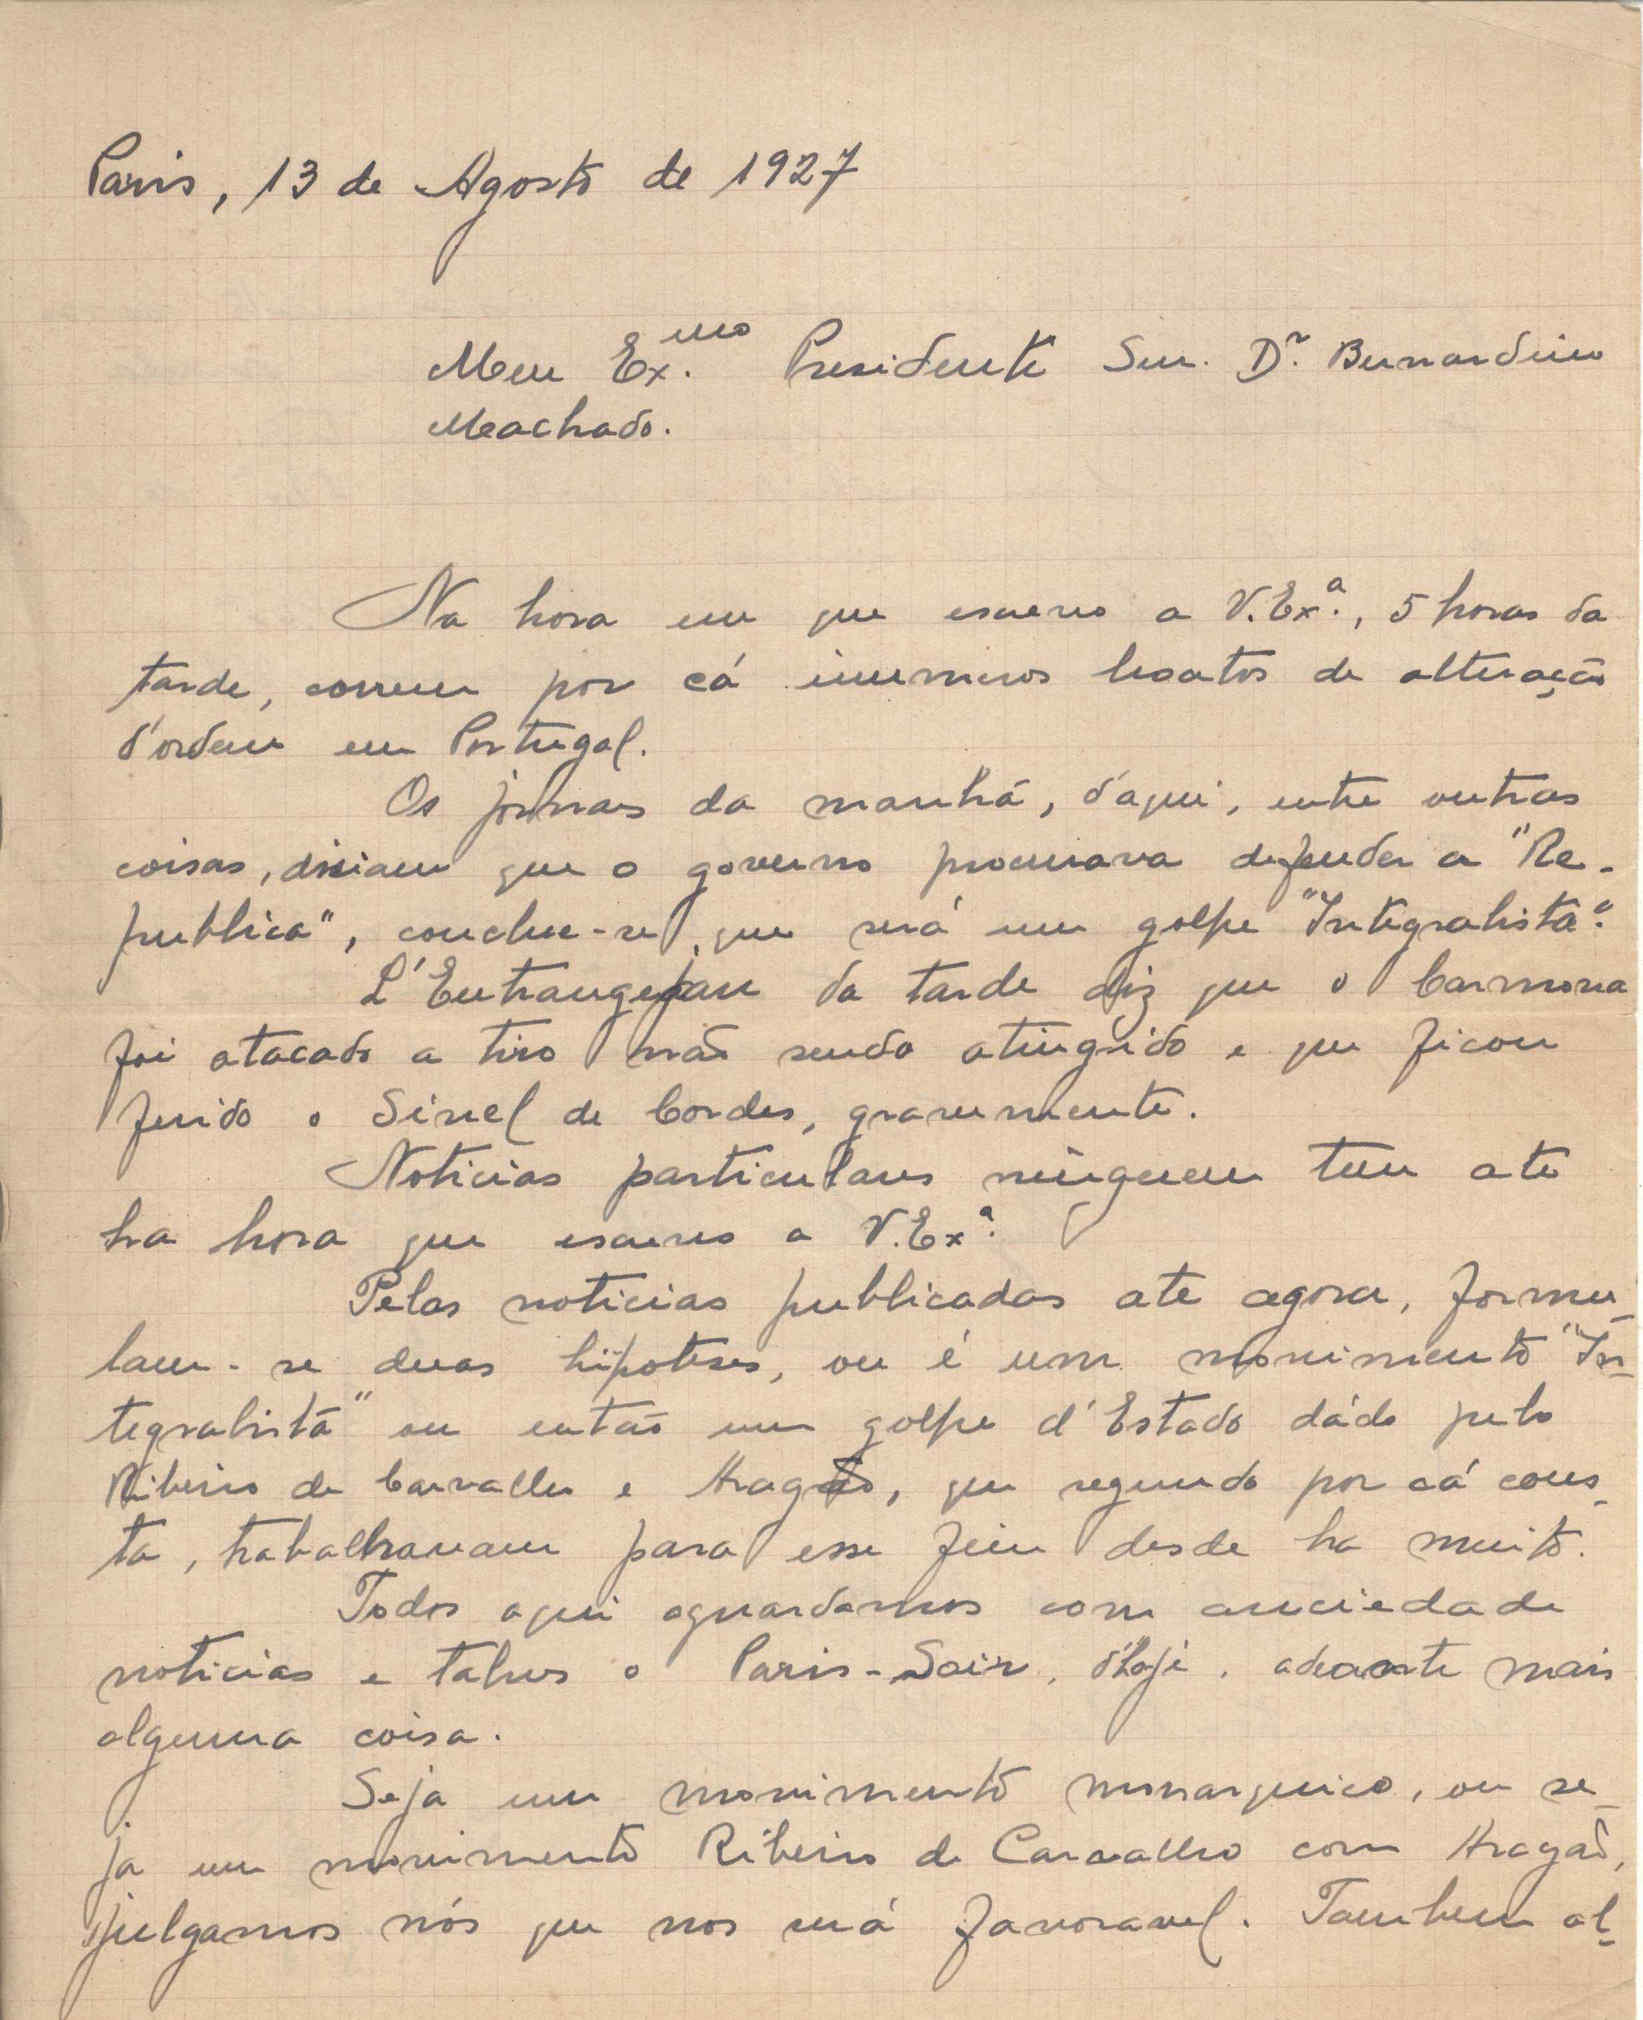 Paris, 13 de Agosto de 1927
Meu Ex.mo Presidente Snr. Dr. Bernardino
Machado.
Na hora em que escrevo a V. Ex.a, 5 horas da
tarde, correm por cá inumeros boatos de alteração
d'ordem em Portugal.
Os jornaes da manhã, d'aqui, entre outras
coisas, diziam que o governo procurava defender a "Re-
publica", conclue-se, que será um golpe "Integralista".
L'Entrangejan da tarde diz que o Carmona
foi atacado a tiro não sendo atingido e que ficou
ferido o Sinel de Cordes, gravemente.
Noticias particulares ninguem tem ate
ha hora que escrevo a V. Ex.a
Pelas noticias publicadas ate agora, formu-
lam-se duas hipoteses, ou é um movimento "In-
tegralista" ou então um golpe d'Estado dádo pelo
Ribeiro de Carvalho e Aragão, que segundo por cá cons-
ta, trabalhavam para esse fim desde ha muito.
Todos aqui aguardamos com anciedade
noticias e talves o Paris-Soir, d'hoje, adeante mais
alguma coisa.
Seja um movimento monarquico, ou se-
ja um movimento Ribeiro de Carvalho com Aragão,
julgamos nós que nos será favoravel. Tambem al-